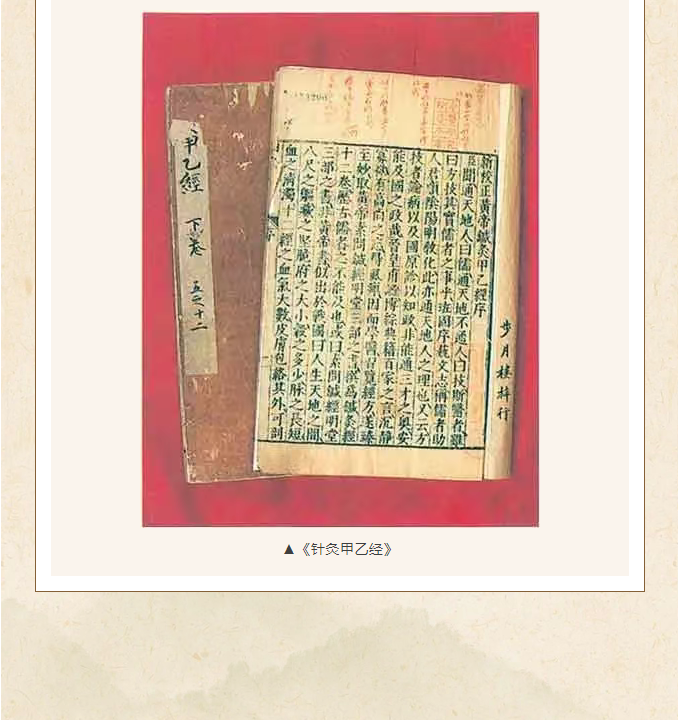 新校正黃帝鍼灸甲乙經序
臣聞通天地人曰儒通天地不通人曰技斯醫者雖
曰方技其實儒者之事乎班固序藝文志稱儒者助
人君順陰陽明教化此亦通天地人之理也又云方
技者論病以及國原診以知政非能通三才之奧安
能及國之政哉晉皇甫謐博綜典籍百家之言沉靜
寡欲有高尚之志得風痹因而學醫習覽經方遂臻
至妙取黃帝素問鍼經明堂三部之書撰爲鍼灸經
十二卷歷古儒者之不能及也或曰素問鍼經明堂
三部之書非黃帝書似出於戰國曰人生天地之間
八尺之軀藏之堅脆府之大小穀之多少脉之長短
血之清濁十二經之血氣大數皮膚包絡其外可剖
步月樓梓行
甲乙經 下卷 五之十二
▲《针灸甲乙经》